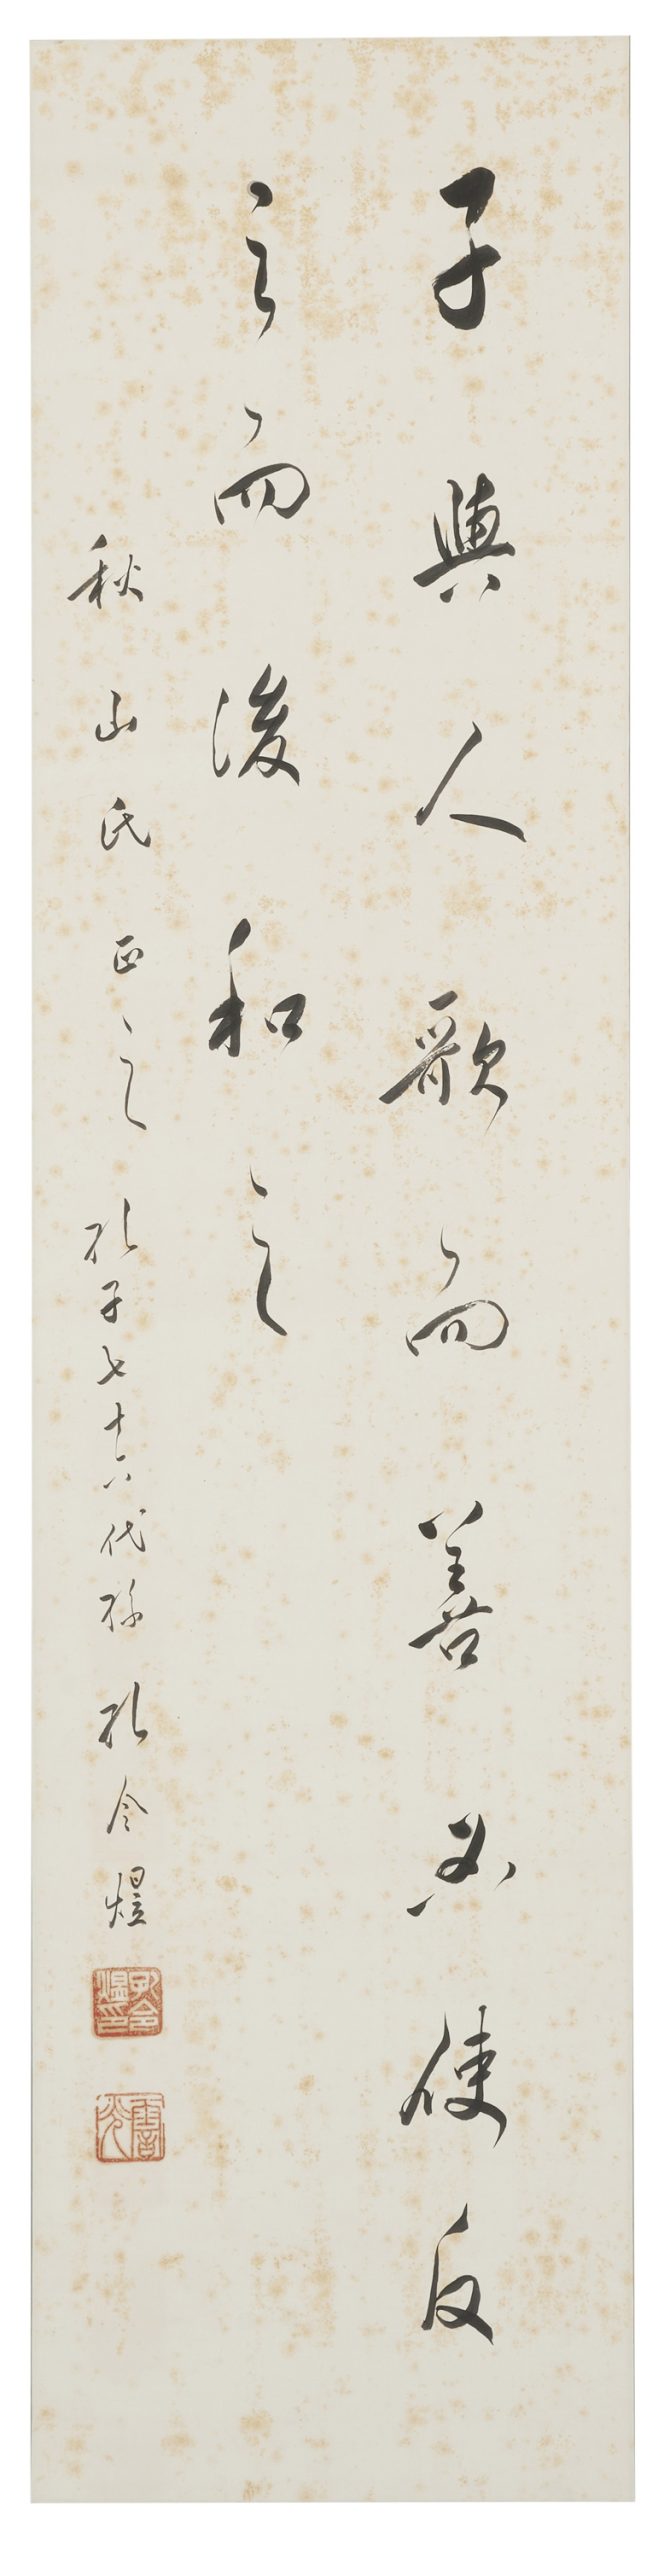 子與人歌而善必使反
之而後和之
秋山氏 正之 孔子七十六代孫 孔令煜
孔令煜印